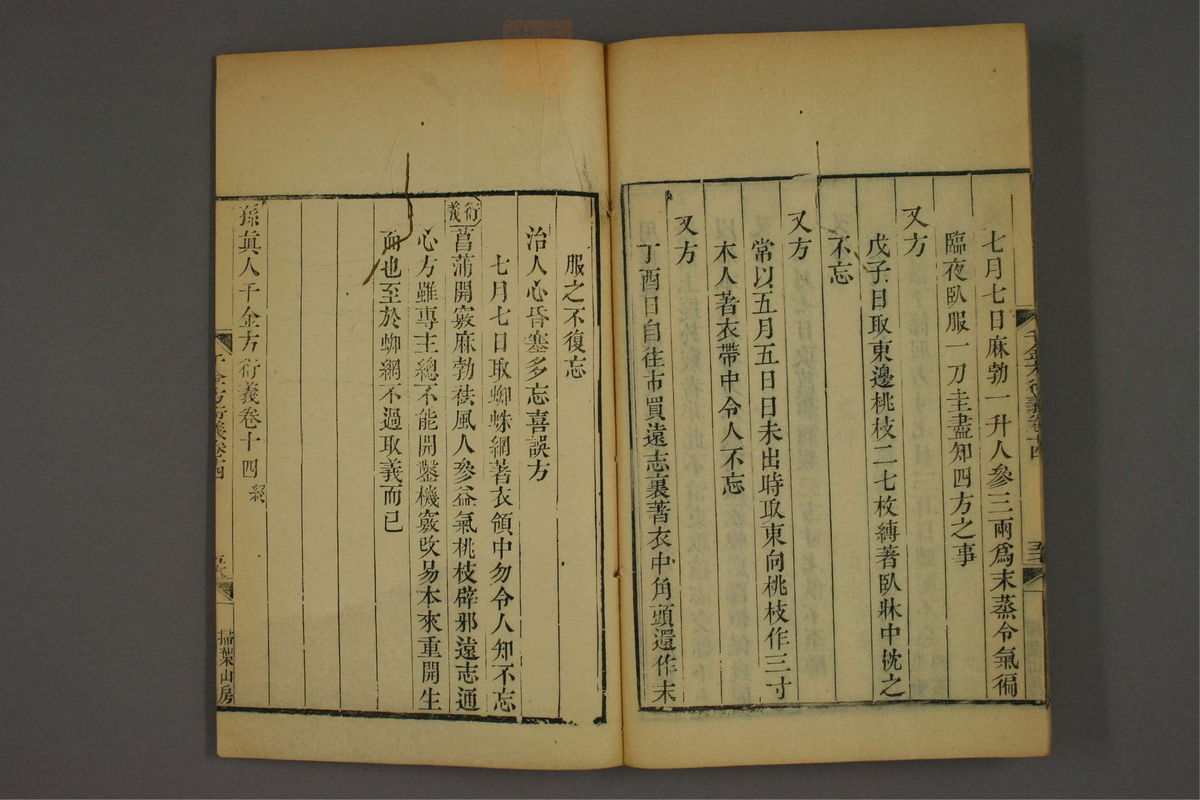 七月七日麻勃一升人參三兩爲末蒸令氣徧
臨夜臥服一刀圭盡知四方之事
又方
戊子日取東邊桃枝二七枚縛著臥牀中枕之
不忘
又方
常以五月五日日未出時取東向桃枝作三寸
木人著衣帶中令人不忘
又方
丁酉日自往市買遠志裹著衣中角頭還作末
服之不復忘
治人心昏塞多忘喜誤方
七月七日取蜘蛛網著衣領中勿令人知不忘
衍義
菖蒲開竅麻勃祛風人參益氣桃枝辟邪遠志通
心方雖專主總不能開鑿機竅改易本來重開生
面也至於蜘網不過取義而已
孫眞人千金方衍義卷十四終
千金方衍義卷十四
掃葉山房